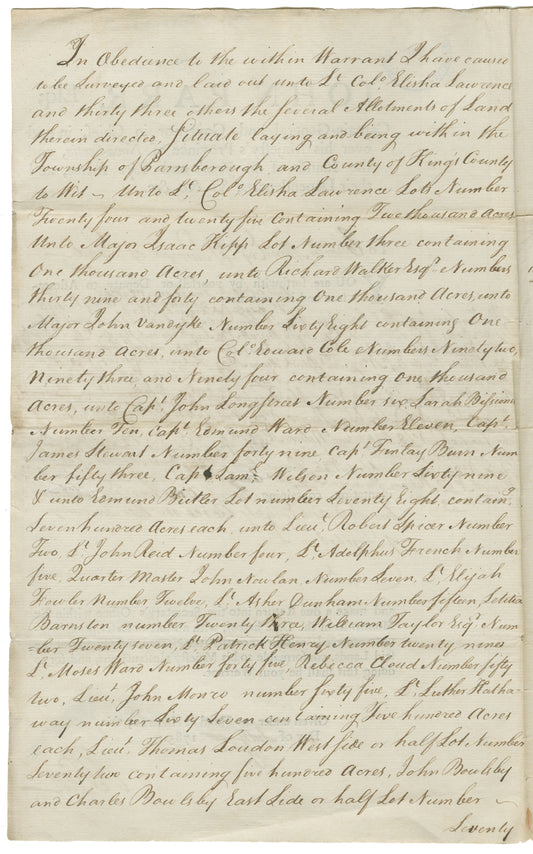 In Obedience to the within Warrant I have caused
to be Surveyed and laid out unto Lt. Colo. Elisha Lawrence
and thirty three others the several Allotments of Land
therein directed, Situate laying and being within the
Township of Parrsborough and County of King's County
to Wit - Unto Lt. Colo. Elisha Lawrence Lots Number
Twenty four and twenty five containing Two thousand Acres
Unto Major Isaac Kipp Lot Number three containing
One thousand Acres, unto Richard Walker Esqr. Numbers
thirty nine and forty containing One thousand Acres, unto
Major John Vandyke Number Sixty Eight containing One
thousand Acres, unto Colo. Edward Cole Numbers Ninety two,
Ninety three, and Ninety four containing One thousand
Acres, unto Capt. John Longstreet Number six, Sarah
Number Ten, Capt. Edmund Ward Number Eleven, Capt.
James Stewart Number forty nine Capt. Finlay Burn Num
ber fifty three, Capt. Saml. Wilson Number Sixty nine
& unto Edmund Butler Lot number Seventy Eight, containg.
Seven hundred Acres each, unto Lieut. Robert Spicer Number
Two, Lt. John Reid Number four, Lt. Adolphus French Number
five, Quarter Master John Nowlan Number Seven, Lt. Elijah
Fowler Number Twelve, Lt. Asher Dunham Number fifteen, Letitia
Barnston number Twenty three, William Taylor Esqr. Num
-ber Twenty seven, Lt. Patrick Henry Number twenty nine
Lt. Moses Ward Number forty five, Rebecca Cloud Number fifty
two, Lieut. John Monro number sixty five, Lt. Luther Hatha-
way number Sixty Seven containing Five hundred Acres
each, Lieut. Thomas Loudon West side or half Lot Number
Seventy two containing five hundred Acres, John Bowlsby
and Charles Bowlsby East Side or half Lot Number
Seventy